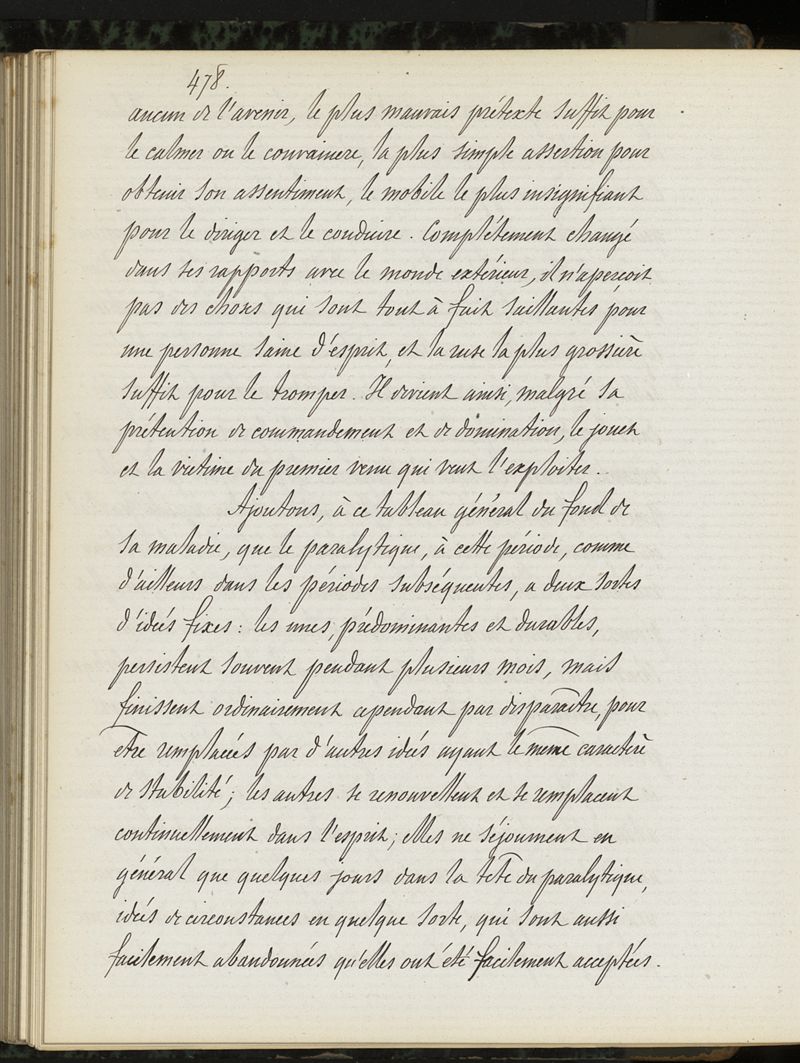 478.
aucun de l'avenir, le plus mauvais prétexte suffit pour
le calmer ou le convaincre, la plus simple assertion pour
obtenir son assentiment, le mobile le plus insignifiant
pour le diriger et le conduire. Complétement changé
dans ses rapports avec le monde extérieur, il n'aperçoit
pas des choses qui sont tout à fait saillantes pour
une personne saine d'esprit, et la ruse la plus grossière
suffit pour le tromper. Il devient ainsi, malgré sa
prétention de commandement et de domination, le jouet
et la victime du premier venu qui veut l'exploiter.
Ajoutons, à ce tableau général du fond de
la maladie, que le paralytique, à cette période, comme
d'ailleurs dans les périodes subséquentes, a deux sortes
d'idées fixes : les unes, prédominantes et durables,
persistent souvent pendant plusieurs mois, mais
finissent ordinairement cependant par disparaître, pour
être remplacées par d'autres idées ayant le même caractère
de stabilité ; les autres se renouvellent et se remplacent
continuellement dans l'esprit ; elles ne séjournent en
général que quelques jours dans la tête du paralytique,
idées de circonstances en quelque sorte, qui sont aussi
facilement abandonnées qu'elles ont été facilement acceptées.